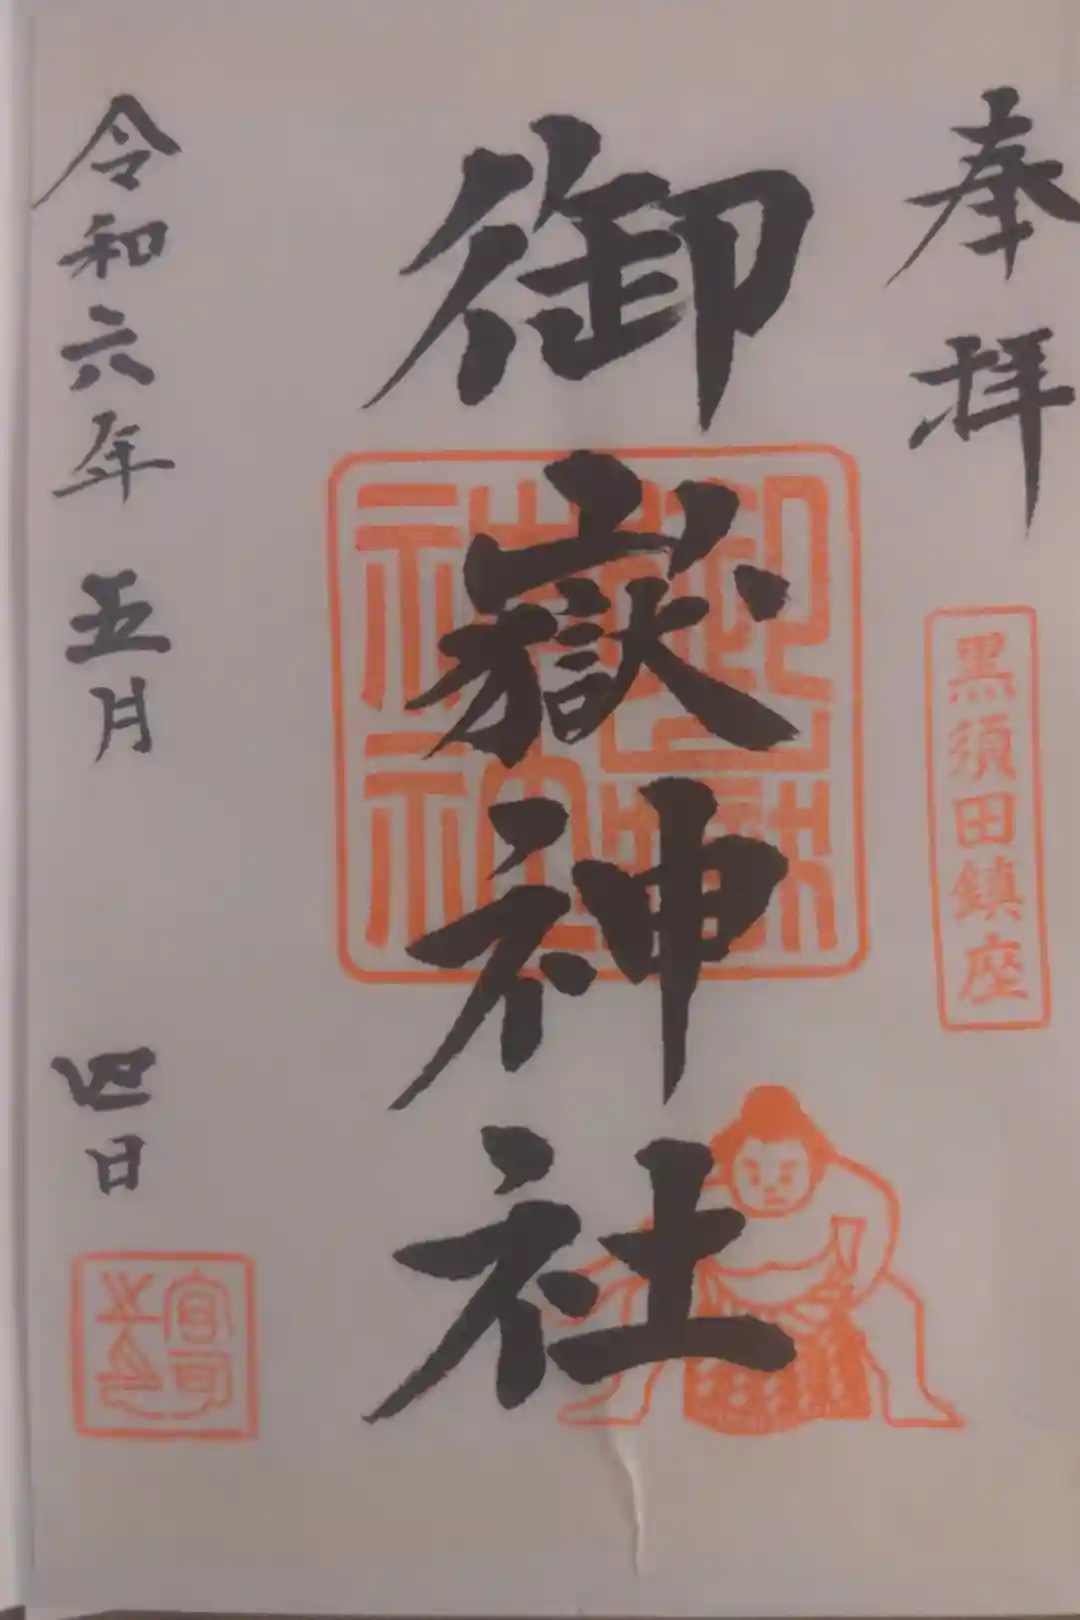 奉拝
黒須田鎮座
御嶽神社
御嶽神社
令和六年五月四日